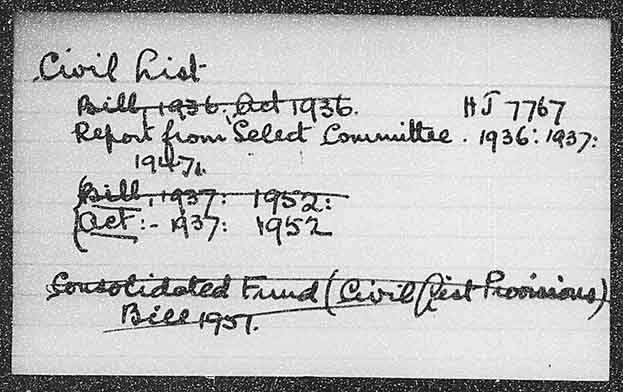 Civil List
Bill, 1936. Act 1936. HJ 7767
Report from Select Committee. 1936: 1937:
1947.
Bill, 1937: 1952:
Act:- 1937: 1952
Consolidated Fund (Civil List Provisions)
Bill 1951.